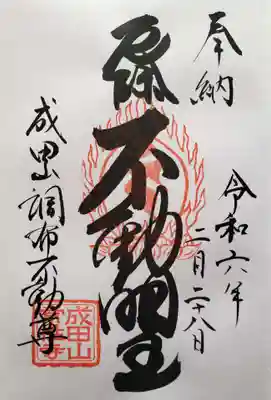 奉納
令和六年
二月二十八日
厄除不動明王
成田山調布不動尊
成田山